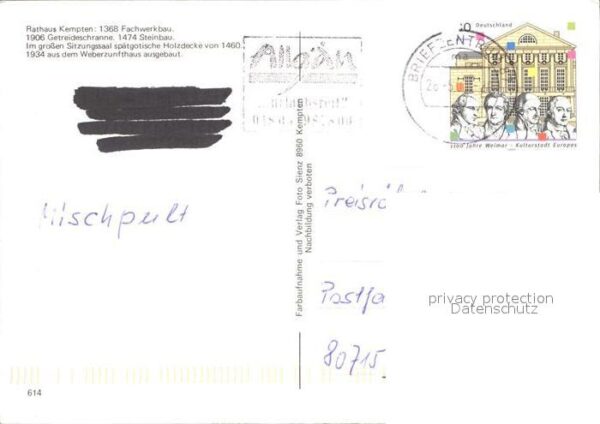 Rathaus Kempten: 1368 Fachwerkbau.
1906 Getreideschranne. 1474 Steinbau.
Im großen Sitzungssaal spätgotische Holzdecke von 1460.
1934 aus dem Weberzunfthaus ausgebaut.
Allgäu
Deutschland
1100 Jahre Weimar – Kulturstadt Europas
Mischpult
Farbaufnahme und Verlag Foto Sienz 8960 Kempten
Nachbildung verboten
Preisrä
Postfa
80715
privacy protection
Datenschutz
614